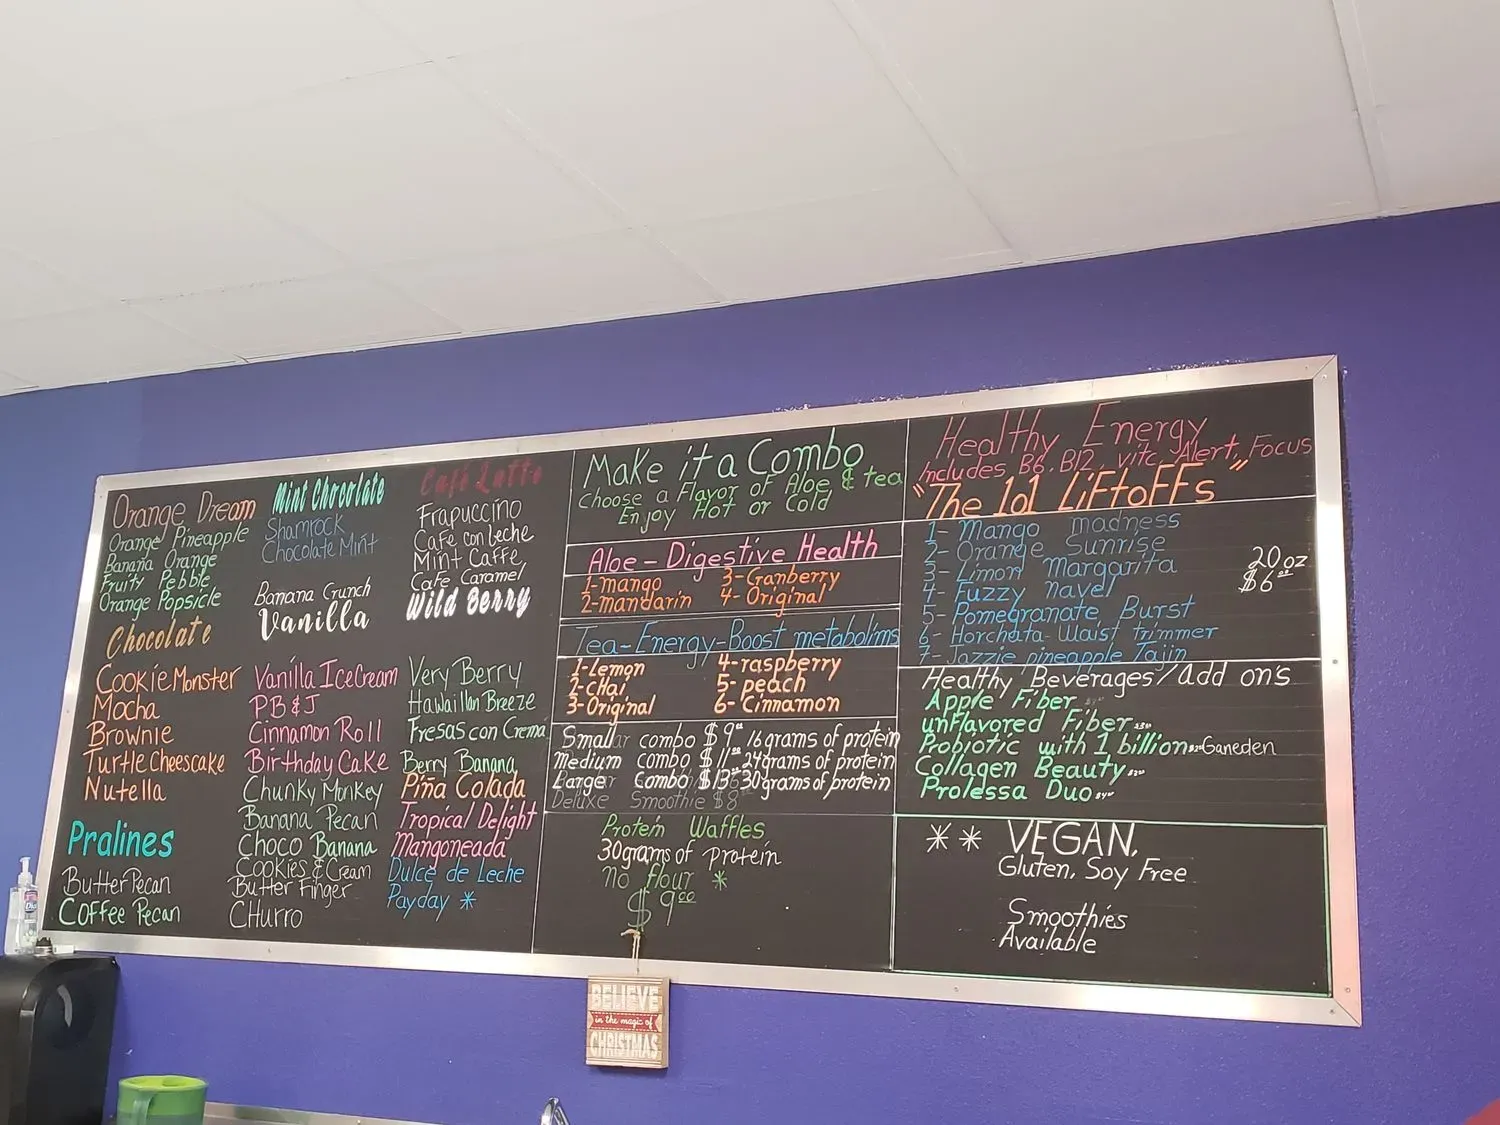 Orange Dream
Orange Pineapple
Banana Orange
Fruity Pebble
Orange Popsicle
Chocolate
Cookie Monster
Mocha
Brownie
Turtle Cheescake
Nutella
Pralines
Butter Pecan
Coffee Pecan
Mint Chocolate
Shamrock
Chocolate Mint
Banana Crunch
Vanilla
Vanilla Ice Cream
PB & J
Cinnamon Roll
Birthday Cake
Chunky Monkey
Banana Pecan
Choco Banana
Cookies & Cream
Butter Finger
CHurro
Café Latte
Frapuccino
Cafe con leche
Mint Caffe
Cafe Caramel
Wild Berry
Very Berry
Hawaiian Breeze
Fresas con Crema
Berry Banana
Piña Colada
Tropical Delight
Mangoneada
Dulce de Leche
Payday *
Make it a Combo
Choose a Flavor of Aloe & tea
Enjoy Hot or Cold
Aloe - Digestive Health
1- mango 3- Cranberry
2- mandarin 4- Original
Tea-Energy-Boost metabolims
1- Lemon 4- raspberry
2- chai 5- peach
3- Original 6- Cinnamon
Small combo $9.00 16 grams of protein
Medium combo $11.00 24 grams of protein
Larger Combo $13 30 grams of protein
Deluxe Smoothie $8
Protein Waffles
30grams of protein
no flour *
$ 9.00
Healthy Energy
Includes B6, B12, vitc, Alert, Focus
"The 101 LiFtoFFs"
1- Mango madness
2- Orange Sunrise
3- Limon Margarita
4- Fuzzy navel
5- Pomegranate Burst
6- Horchata-Waist trimmer
7- Jazzie pineapple Tajin
20 oz
$6.00
Healthy Beverages/Add on's
Apple Fiber
unFlavored Fiber
Probiotic with 1 billion Ganeden
Collagen Beauty
Prolessa Duo
** VEGAN,
Gluten, Soy Free
Smoothies
Available
BELIEVE
in the magic of
CHRISTMAS